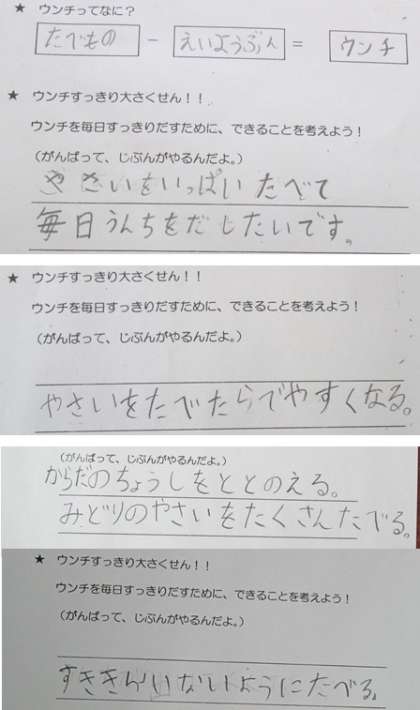 ★ ウンチってなに？
たべもの － えいようぶん ＝ ウンチ
★ ウンチすっきり大さくせん！！
ウンチを毎日すっきりだすために、できることを考えよう！
（がんばって、じぶんがやるんだよ。）
やさいをいっぱいたべて
毎日うんちをだしたいです。
★ ウンチすっきり大さくせん！！
ウンチを毎日すっきりだすために、できることを考えよう！
（がんばって、じぶんがやるんだよ。）
やさいをたべたらでやすくなる。
（がんばって、じぶんがやるんだよ。）
からだのちょうしをととのえる。
みどりのやさいをたくさんたべる。
★ ウンチすっきり大さくせん！！
ウンチを毎日すっきりだすために、できることを考えよう！
（がんばって、じぶんがやるんだよ。）
すききらいないようにたべる。